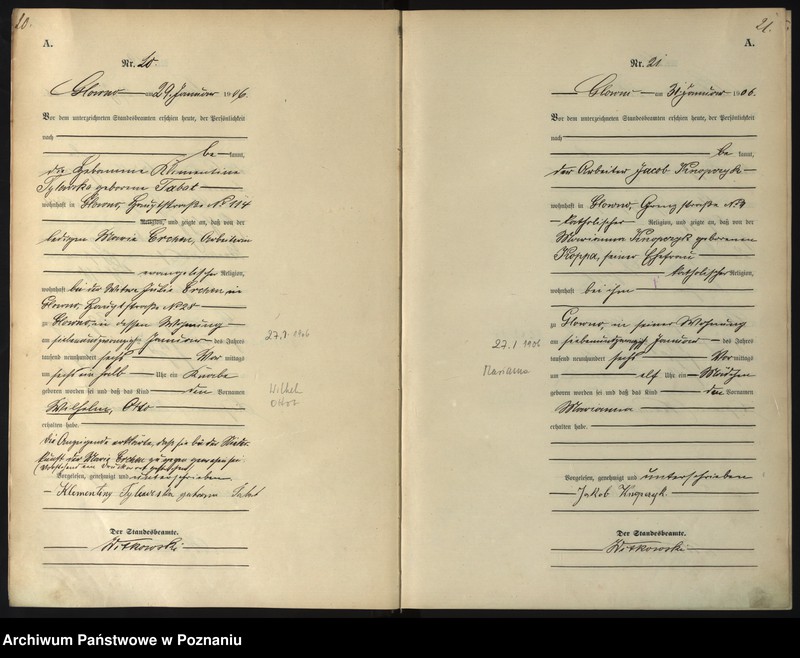 20.
A.
Nr. 20.
Glowno am 29. Januar 1906.
Vor dem unterzeichneten Standesbeamten erschien heute, der Persönlichkeit
nach
be kannt,
die Hebamme Klementine
geborene Tabst
wohnhaft in Glowno, Hauptstraße No 114
Religion, und zeigte an, daß von der
ledigen Marie Erchen, Arbeiterin
evangelischer Religion,
wohnhaft bei der Witwe Julie Erchen in
Glowno, Hauptstraße No 28
zu Glowno, in dessen Wohnung
am siebenundzwanzigsten Januar des Jahres
tausend neunhundert sechs Vor mittags
um sechs ein halb Uhr ein Knabe
geboren worden sei und daß das Kind den Vornamen
Wilhelm, Otto
erhalten habe.
Die Anzeigende erklärte, daß sie bei der Nieder-
kunft der Marie Erchen zugegen gewesen sei.
(Vorstehend ein Druckwort gestrichen)
Vorgelesen, genehmigt und unterschrieben.
Klementine geborene Tabst
Der Standesbeamte.
Witkowski
27.I 1906
Wilhel
Otto
21.
A.
Nr. 21
Glowno am 31. Januar 1906.
Vor dem unterzeichneten Standesbeamten erschien heute, der Persönlichkeit
nach
be kannt,
der Arbeiter Jacob Knopczyk
wohnhaft in Glowno, Grenzstraße No 3
katholischer Religion, und zeigte an, daß von der
Marianna Knopczyk geborenen
Koppa, seiner Ehefrau
katholischer Religion,
wohnhaft bei ihm
zu Glowno, in seiner Wohnung
am siebenundzwanzigsten Januar des Jahres
tausend neunhundert sechs Vor mittags
um elf Uhr ein Mädchen
geboren worden sei und daß das Kind den Vornamen
Marianna
erhalten habe.
Vorgelesen, genehmigt und unterschrieben
Jakob Knopczyk.
Der Standesbeamte.
Witkowski
27.I 1906
Marianna
Archiwum Państwowe w Poznaniu